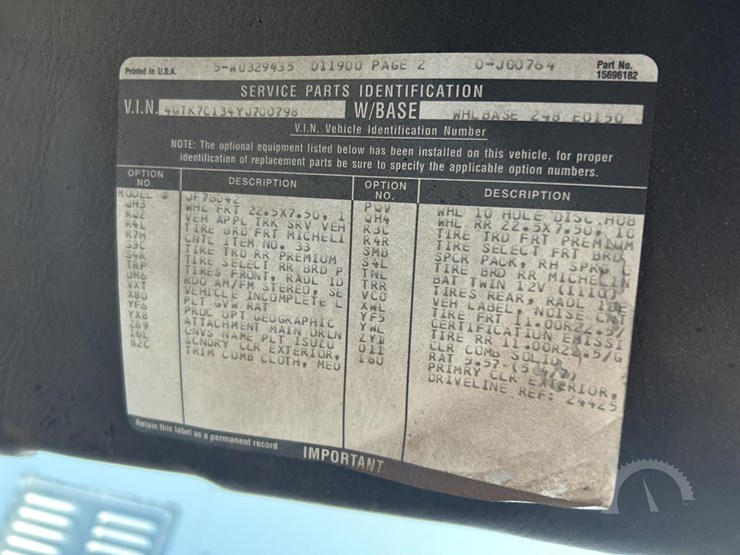 Printed in U.S.A. 5-W0329435 011900 PAGE 2 0-J00764 Part No. 15696182
SERVICE PARTS IDENTIFICATION
V.I.N. 4GTK7C134YJ700798 W/BASE WHLBASE 248 E0150
V.I.N. Vehicle Identification Number
NOTE: The optional equipment listed below has been installed on this vehicle, for proper
identification of replacement parts be sure to specify the applicable option numbers.
OPTION NO. DESCRIPTION OPTION NO. DESCRIPTION
MODEL # JF78042
QH3 WHL FRT 22.5X7.50, 1
RQ2 VEH APPL TRK SRV VEH
R4L TIRE BRD FRT MICHELI
R7M CNTL ITEM NO. 33
S3C TIRE TRD RR PREMIUM
S4R TIRE SELECT RR BRD P
TRF TIRES FRONT, RADL ID
UM6 RDO AM/FM STEREO, SE
VXT VEHICLE INCOMPLETE L
X80 PLT GVW RAT
YF6 PROC OPT GEOGRAPHIC
YX8 ATTACHMENT MAIN ORLN
CNVS NAME PLT ISUZU
16L SCNDRY CLR EXTERIOR,
82C TRIM COMB CLOTH, MED
PQV WHL 10 HOLE DISC.HUB
QH4 WHL RR 22.5X7.50, 10
R3C TIRE TRD FRT PREMIUM
R4R TIRE SELECT FRT BRD
SM8 SPCR PACK, RH SPRG C
S4L TIRE BRD RR MICHELIN
TNL BAT TWIN 12V (1110)
TRR TIRES REAR, RADL IDE
VCO VEH LABEL, NOISE CNT
XWL TIRE FRT 11.00R22.5/
YF5 CERTIFICATION EMISSI
YWL TIRE RR 11.00R22.5/G
ZY1 CLR COMB SOLID
011 RAT 3.57
16U PRIMRY CLR EXTERIOR,
DRIVELINE REF: 24425
Retain this label as a permanent record
IMPORTANT